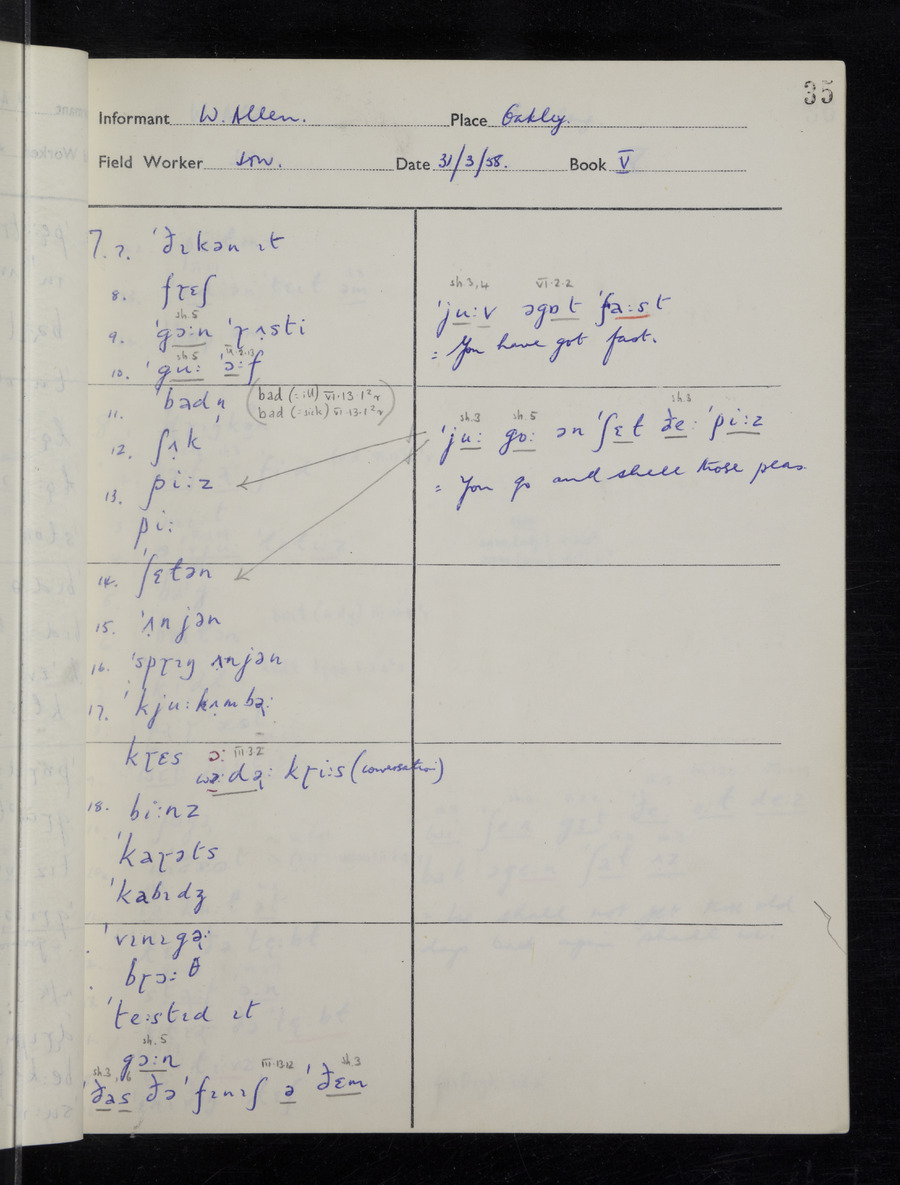 35
Informant W. Allen. Place Oakley.
Field Worker Date 31/3/58. Book V
7. 7. ˈðɪkən ɪt
8. fɽɛʃ
sh.5
9. ˈgɔ:n ˈɽʌsti
sh.5
10. ˈgu: ɔ:f
11. ˈbad (bad (=ill) VI·13·1²ɴ
bad (=sick) VI·13·1²ɴ)
12. ʃʌk
13. pi:z
pi:
14. ˈʃɛtən
15. ˈʌnjən
16. ˈspɽɪŋ ʌnjən
17. ˈkju:kʌmbə:
kɽɛs ɔ: III 3 2
wə:də: kɽi:s (conversation)
18. bi:nz
ˈkaɽəts
ˈkabɪdʒ
ˈvɪnɪgə:
bɽɔ:θ
ˈte:stɪd ɪt
sh.5
gɔ:n
sh.3 , 6 III·13·12 sh.3
ˈðas ðə ˈfɪnɪʃ ə ˈðɛm
sh.3,4 VI·2·2
ˈju:v əgɒt ˈfa:st
= You have got fast.
sh.3 sh.5 sh.3
ˈju: gɒ: ən ˈʃɛt ðe: ˈpi:z
= You go and shell those peas